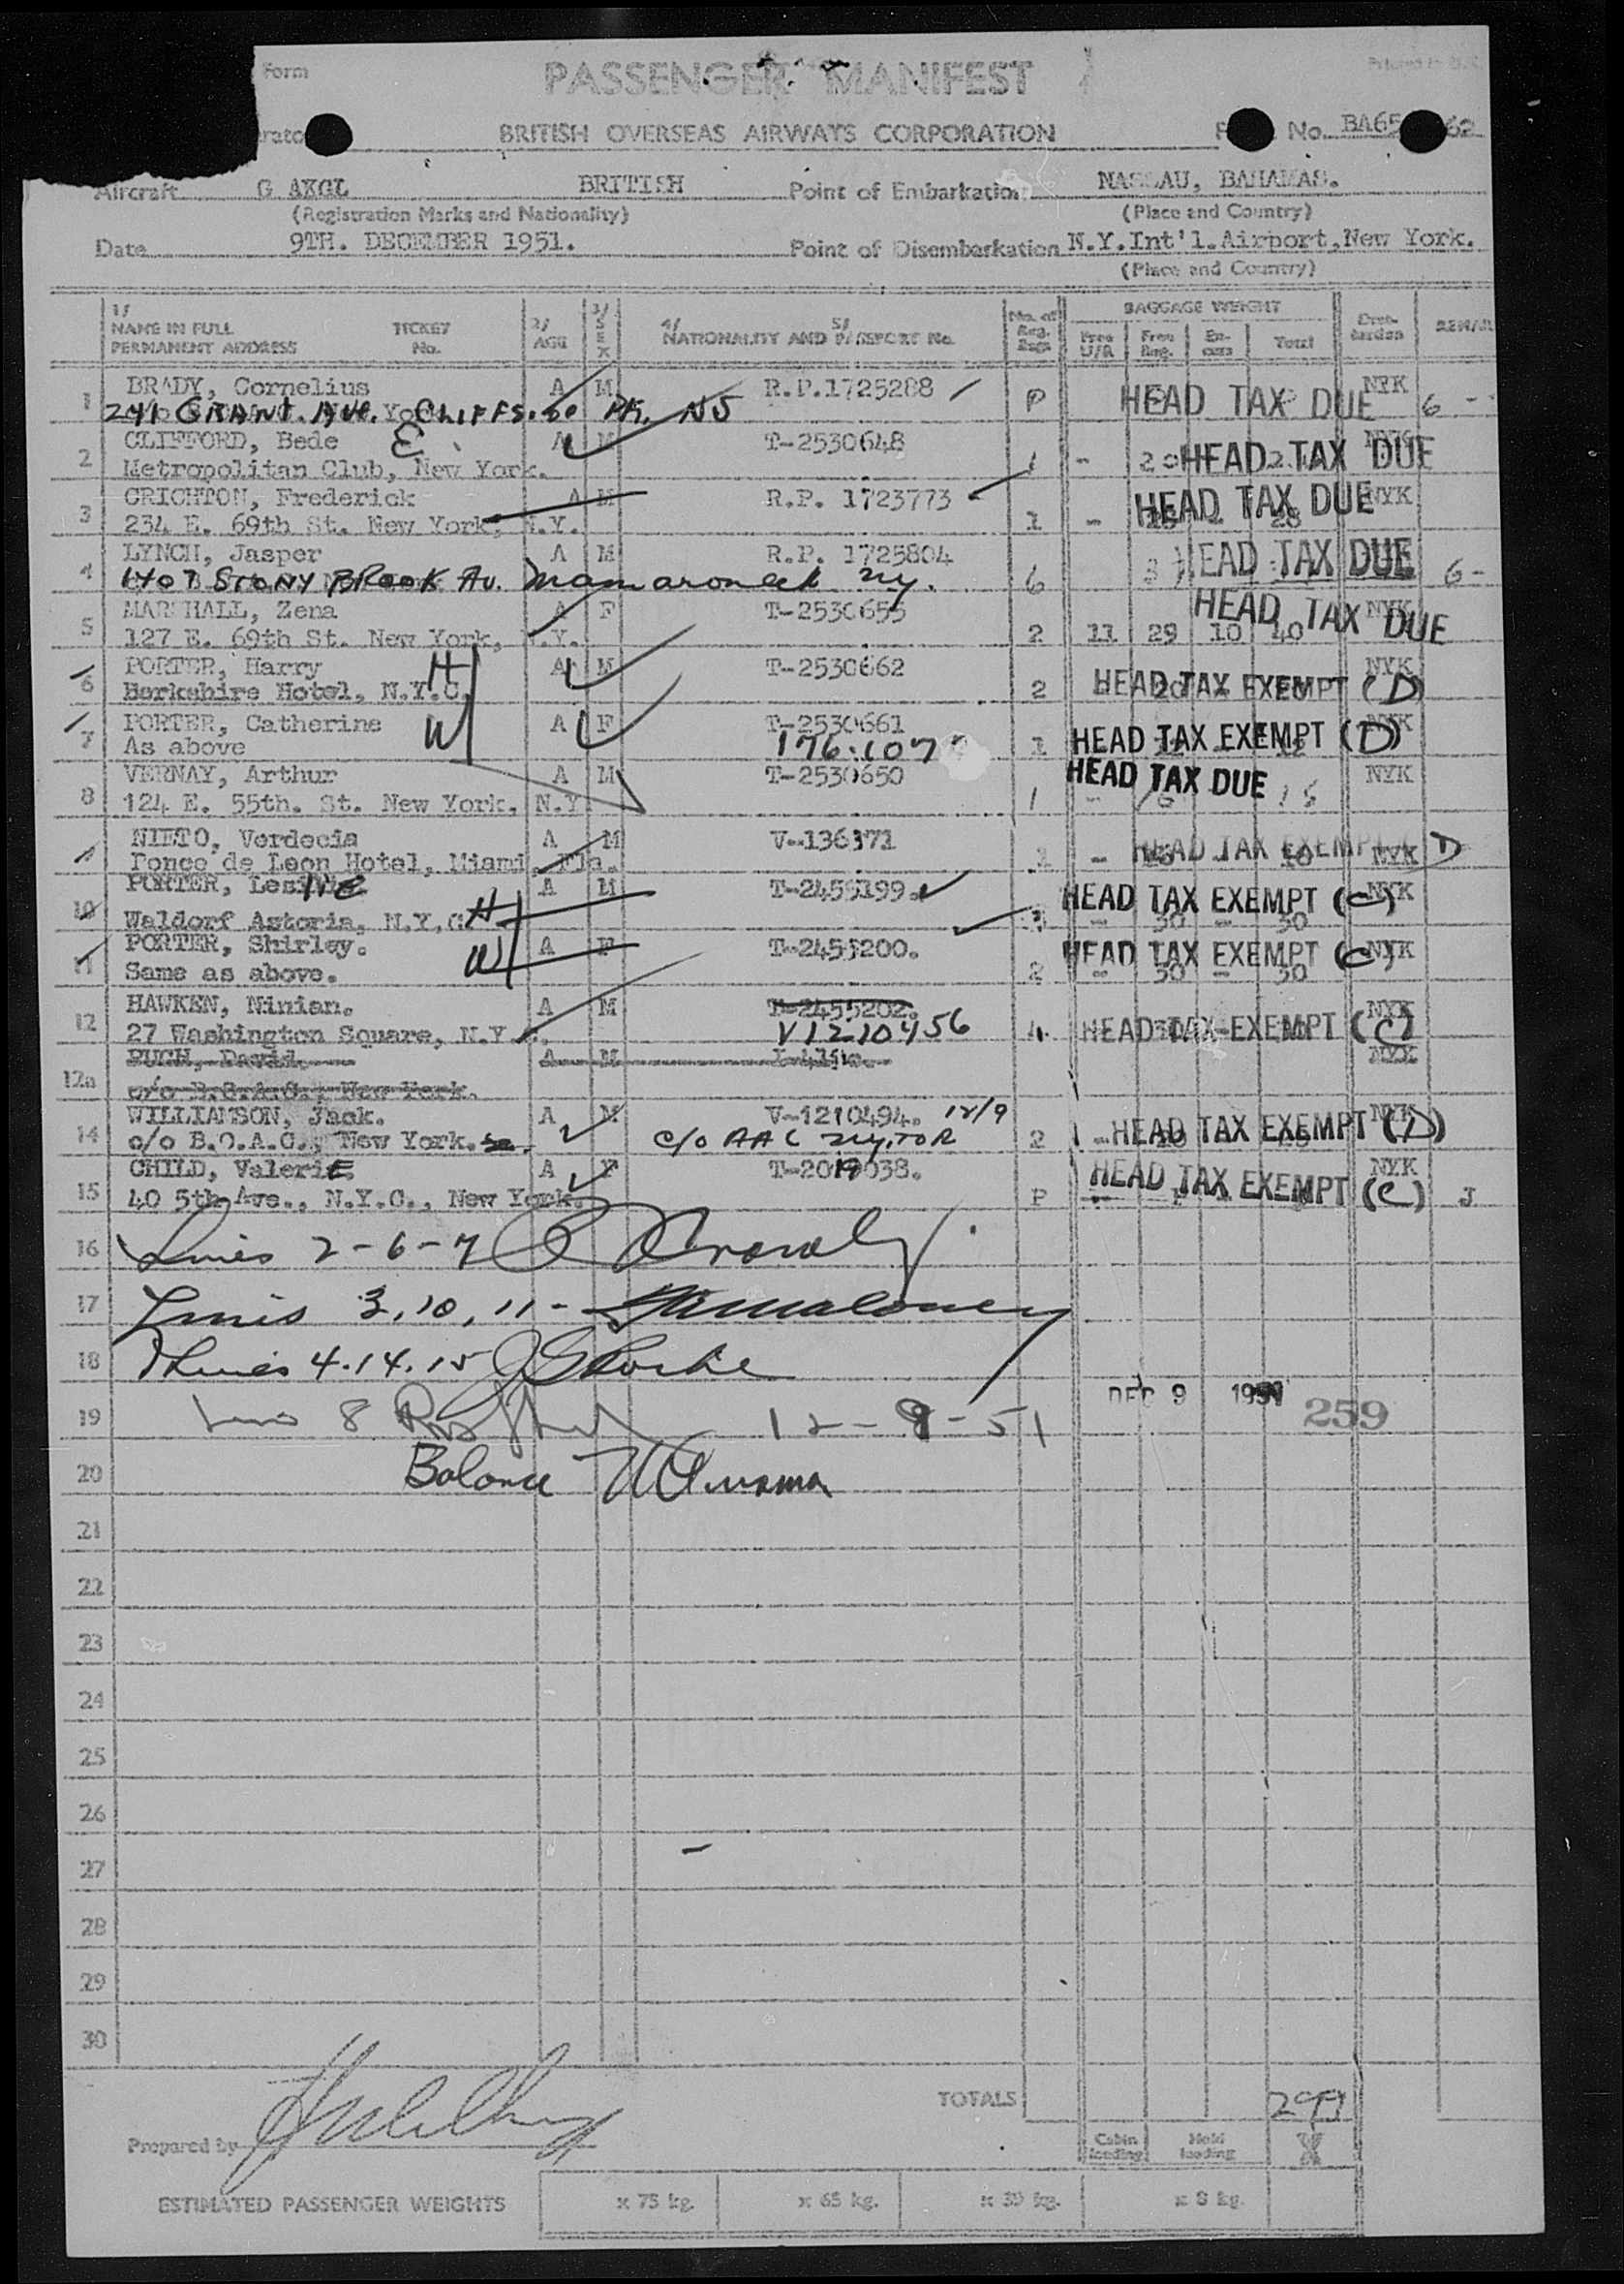 Form
PASSENGER MANIFEST
BRITISH OVERSEAS AIRWAYS CORPORATION
No. BA65 62
Aircraft G AKGL BRITISH Point of Embarkation NASSAU, BAHAMAS.
(Registration Marks and Nationality) (Place and Country)
Date 9TH. DECEMBER 1951. Point of Disembarkation N.Y.Int'l.Airport,New York.
(Place and Country)
1/ NAME IN FULL PERMANENT ADDRESS TICKET No. 2/ AGE 3/ SEX 4/ 5/ NATIONALITY AND PASSPORT No. No. of Reg. Bags BAGGAGE WEIGHT Free U/R Free Reg. Ex-cess Total
1 BRADY, Cornelius A M R.P.1725288 P HEAD TAX DUE NYK 6 -
241 GRANT. AVE. CLIFFSIDE PK. NJ
2 CLIFFORD, Bede E A M T-2530648
Metropolitan Club, New York. 1 - 20 HEAD TAX DUE
3 CRICHTON, Frederick A M R.P. 1723773 HEAD TAX DUE NYK
234 E. 69th St. New York, N.Y. 1 -
4 LYNCH, Jasper A M R.P. 1725804 HEAD TAX DUE
1407 STONY BROOK AV. Mamaroneck NY. 6 6-
5 MARSHALL, Zena A F T-2530655 HEAD TAX DUE NYK
127 E. 69th St. New York, N.Y. 2 11 29 10 40
6 PORTER, Harry H A M T-2530662 NYK
Berkshire Hotel, N.Y.C. 2 HEAD TAX EXEMPT (D)
7 PORTER, Catherine W A F T-2530661 NYK
As above 1 HEAD TAX EXEMPT (D)
8 VERNAY, Arthur A M T-2530650 HEAD TAX DUE NYK
124 E. 55th. St. New York, N.Y. 1 -
NIETO, Verdecia A M V-136371
Ponce de Leon Hotel, Miami, Fla. 1 - HEAD TAX EXEMPT D NYK
10 PORTER, Leslie A M T-2455199. HEAD TAX EXEMPT (C) NYK
Waldorf Astoria, N.Y.C. H - 30 - 30
11 PORTER, Shirley. W A F T-2455200. HEAD TAX EXEMPT (C) NYK
Same as above. 2 - 30 - 30
12 HAWKEN, Ninian. A M T-2455202. NYK
27 Washington Square, N.Y. V1210456 4 HEAD TAX EXEMPT (C)
12a PUGH, David. A M NYK
c/o B.O.A.C., New York.
14 WILLIAMSON, Jack. A M V-1210494. 12/9 NYK
c/o B.O.A.C., New York. 2 HEAD TAX EXEMPT (D)
15 CHILD, Valerie A F T-2019038. NYK
40 5th Ave., N.Y.C., New York. P HEAD TAX EXEMPT (C) J
16 Lines 2-6-7
17 Lines 3,10,11-
18 Lines 4.14.15
DEC 9 1951 259
19 8 12-9-51
20 Balance
21
22
23
24
25
26
27
28
29
30
TOTALS
Prepared by
Cabin loading Hold loading
ESTIMATED PASSENGER WEIGHTS x 75 kg. x 65 kg. x 39 kg. x 8 kg.